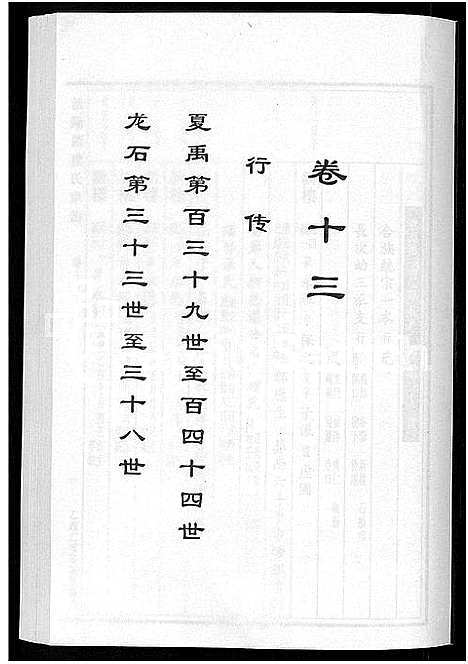 卷十三
行传
夏禹第百三十九世至百四十四世
龙石第三十三世至三十八世